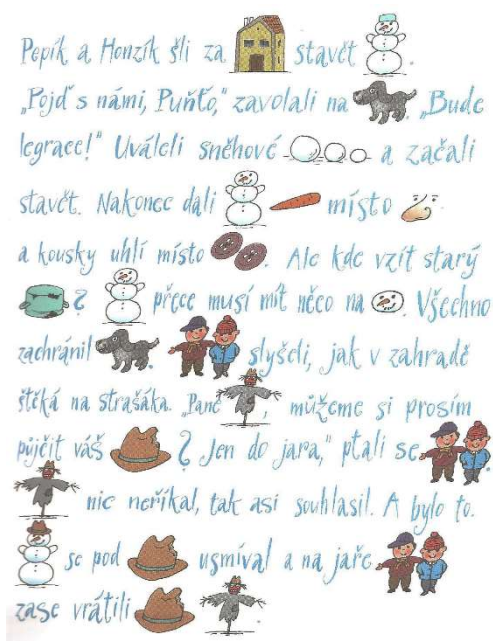 Pepík a Honzík šli za stavět .
„Pojď s námi, Punťo,“ zavolali na . „Bude
legrace!“ Uváleli sněhové a začali
stavět. Nakonec dali místo
a kousky uhlí místo . Ale kde vzít starý
? přece musí mít něco na . Všechno
zachránil . slyšeli, jak v zahradě
štěká na strašáka. „Pane , můžeme si prosím
půjčit váš ? Jen do jara,“ ptali se
nic neříkal, tak asi souhlasil. A bylo to.
se pod usmíval a na jaře
zase vrátili .